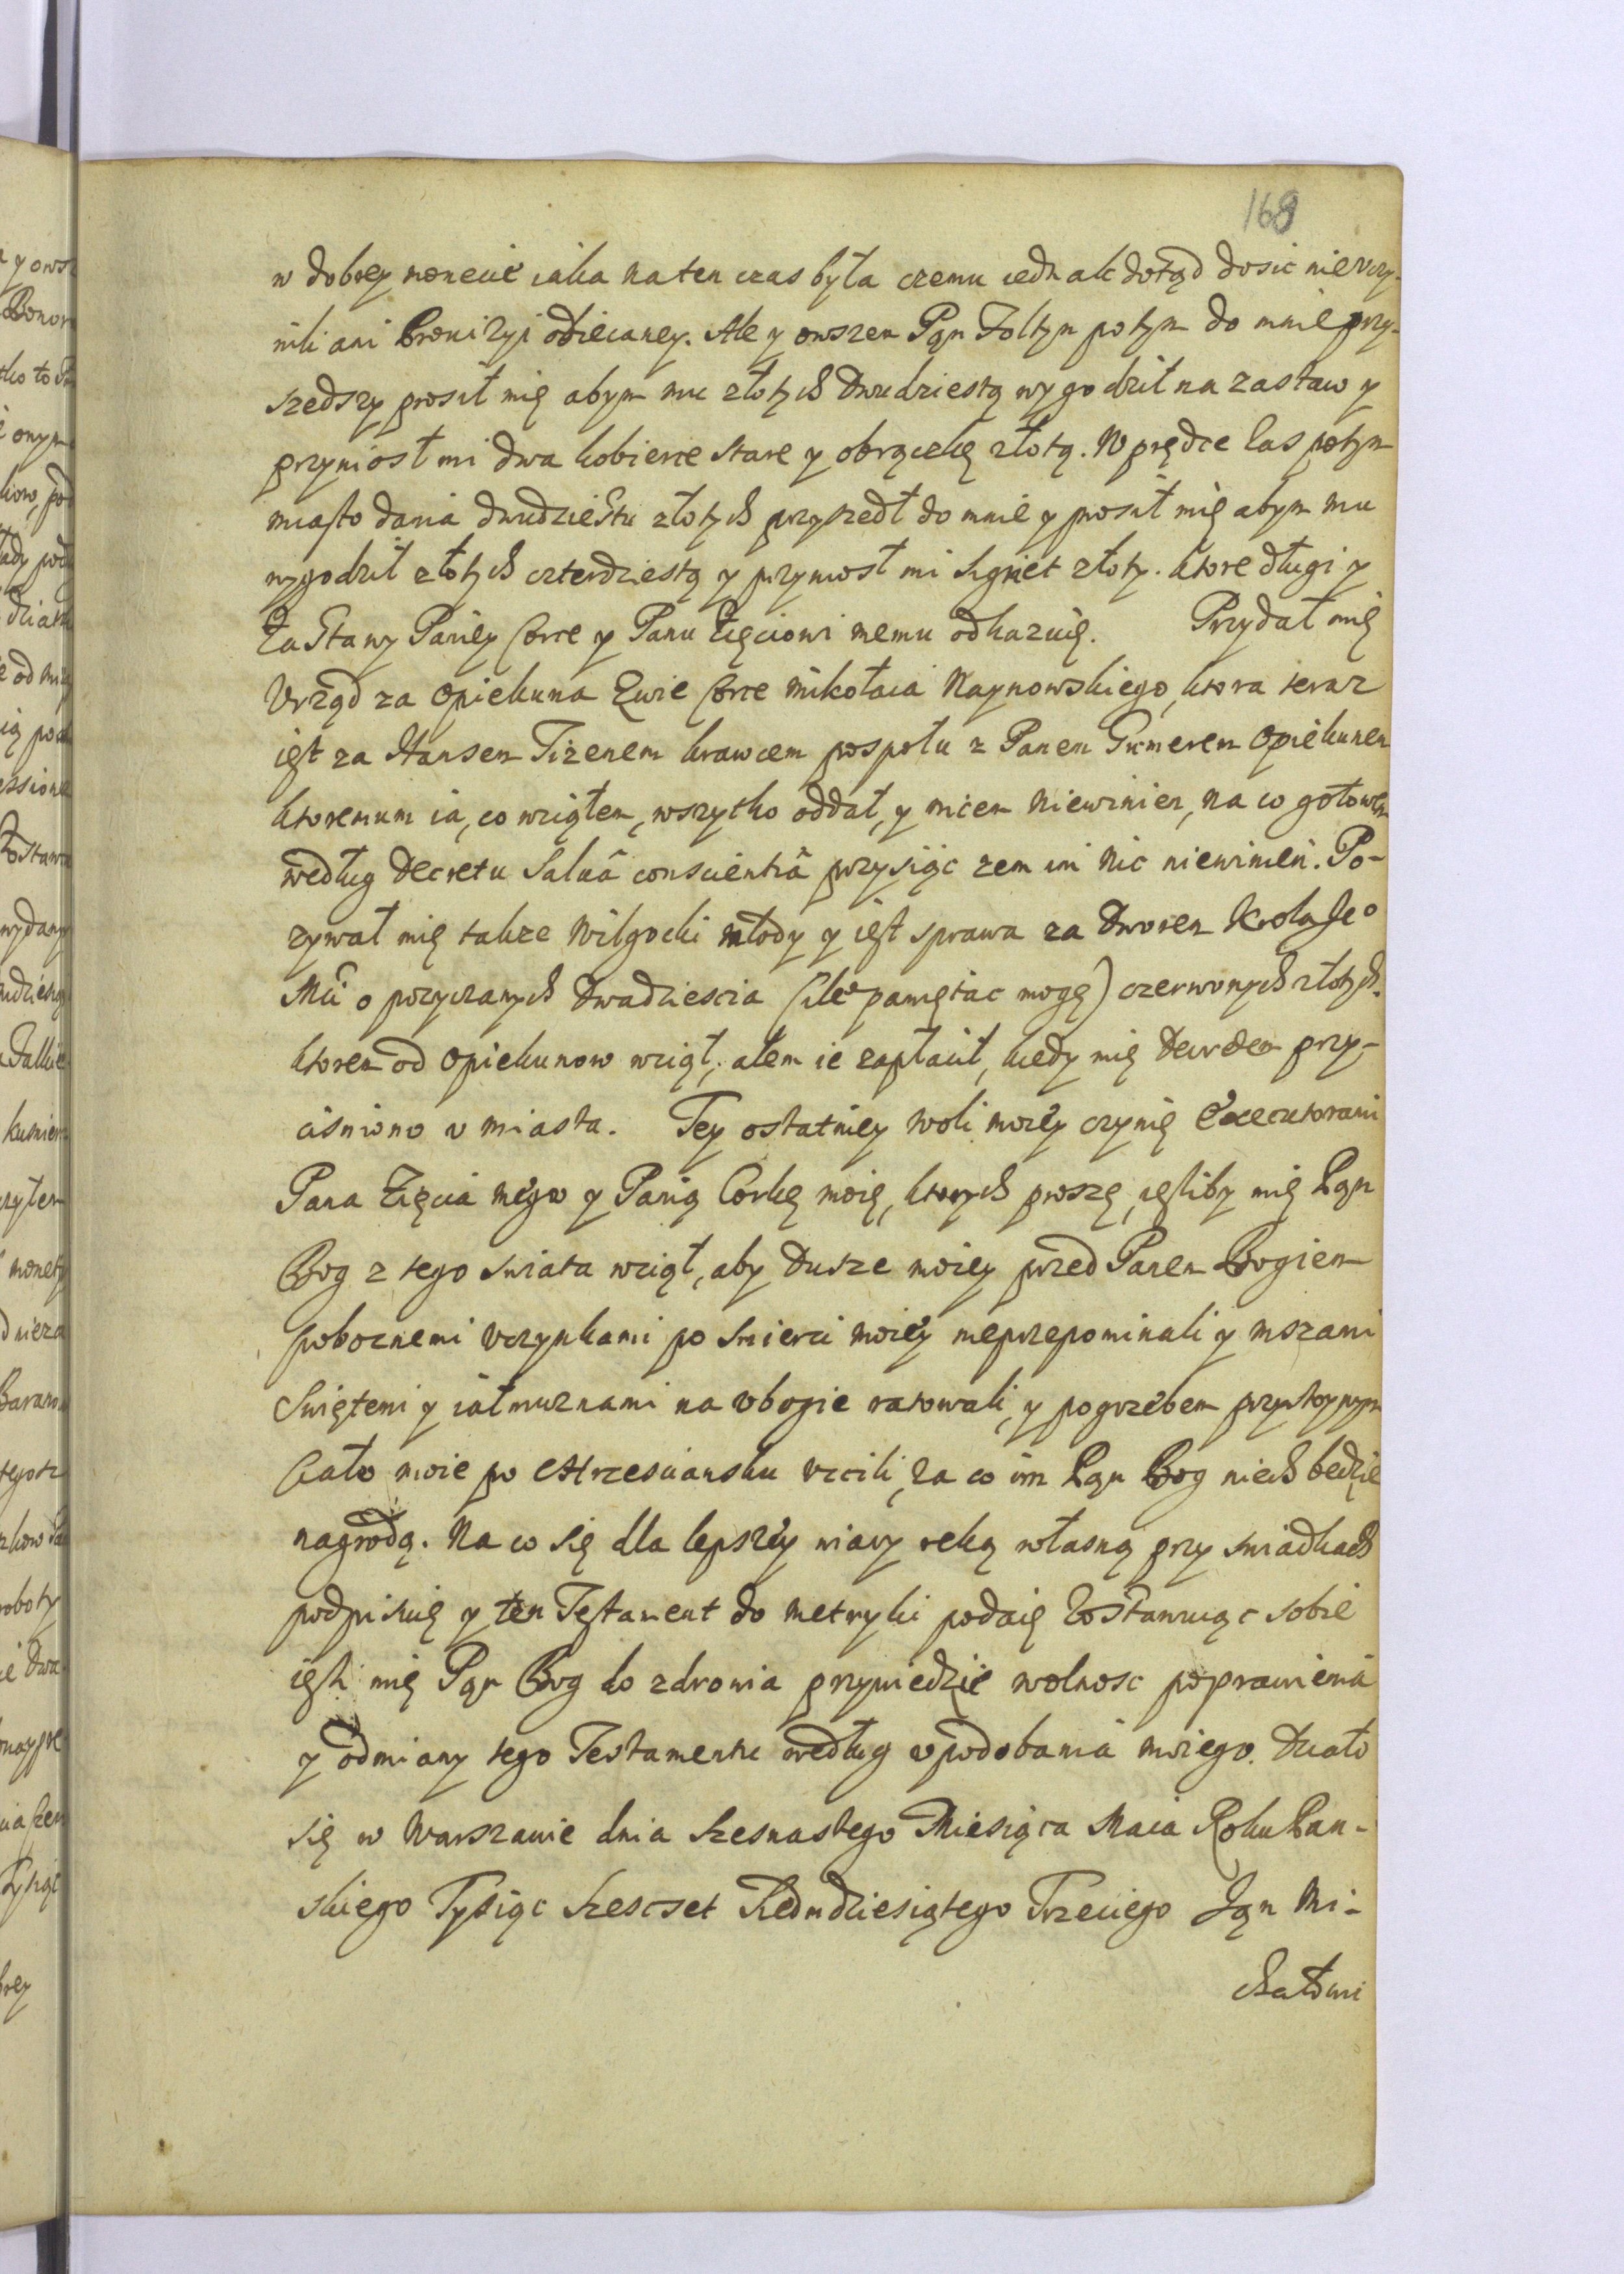 168
w dobrey monecie iaka na ten czas była czemu iednak dotąd dosic nie vczy-
nili ani Prowizyi obiecaney. Ale y owszem Pan Foltyn potym do mnie przy-
szedszy prosił mię abym mu złotych dwudziestą wygodził na zastaw y
przyniosł mi dwa kobierce stare y obrączkę złotą. W prędce zas potym
miasto dania dwudziestu złotych przyszedł do mnie y prosił mię abym mu
wygodził złotych czterdziestą y przyniosł mi sygnet złoty. ktore długi y
Zastawy Paniey Corce y Panu Zięciowi memu odkazuię. Przydał mię
Vrząd za Opiekuna Ewie Corce Mikołaia Kaynowskiego, ktora teraz
iest za Hansem Tizenem krawcem pospołu z Panem Opiekunem
ktoremum ia, co wziąłem, wszytko oddał, y niciem niewinien, na co gotowem
według Decretu Salua conscientia przysiąc zem im nic niewinien. Po-
zywał mię takze Wilgocki młody y iest sprawa za Dworem Krola Je°
Mći o pozyczanych Dwadziescia (ile pamiętac mogę) czerwonych złotych.
ktorem od Opiekunow wziął, alem ie zapłacił, kiedy mię Decretem przy-
cisniono v miasta. Tey ostatniey woli moiey czynię Executorami
Pana Zięcia mego y Panią Corkę moię, ktorych proszę, iesliby mię Pan
Bog z tego swiata wziął, aby Dusze moiey przed Panem Bogiem
poboznemi vczynkami po smierci moiey nieprzepominali y mszami
Swiętemi y iałmuznami na vbogie ratowali, y pogrzebem przystoynym
Ciało moie po Chrzescianstu vccili, za co im Pan Bog niech będzie
nagrodą. Na co się dla lepszey wiary ręką własną przy swiadkach
podpisuię y ten Testament do Metryki podaię zostawuiąc sobie
iesli mię Pan Bog do zdrowia przywiedzie wolnosc poprawienia
y odmiany tego Testamentu według vpodobania moiego. Działo
się w Warszawie dnia Szesnastego Miesiąca Maia Roku Pan-
skiego Tysiąc Szescset Siedmdziesiątego Trzeciego Jan Mi-
chałowi